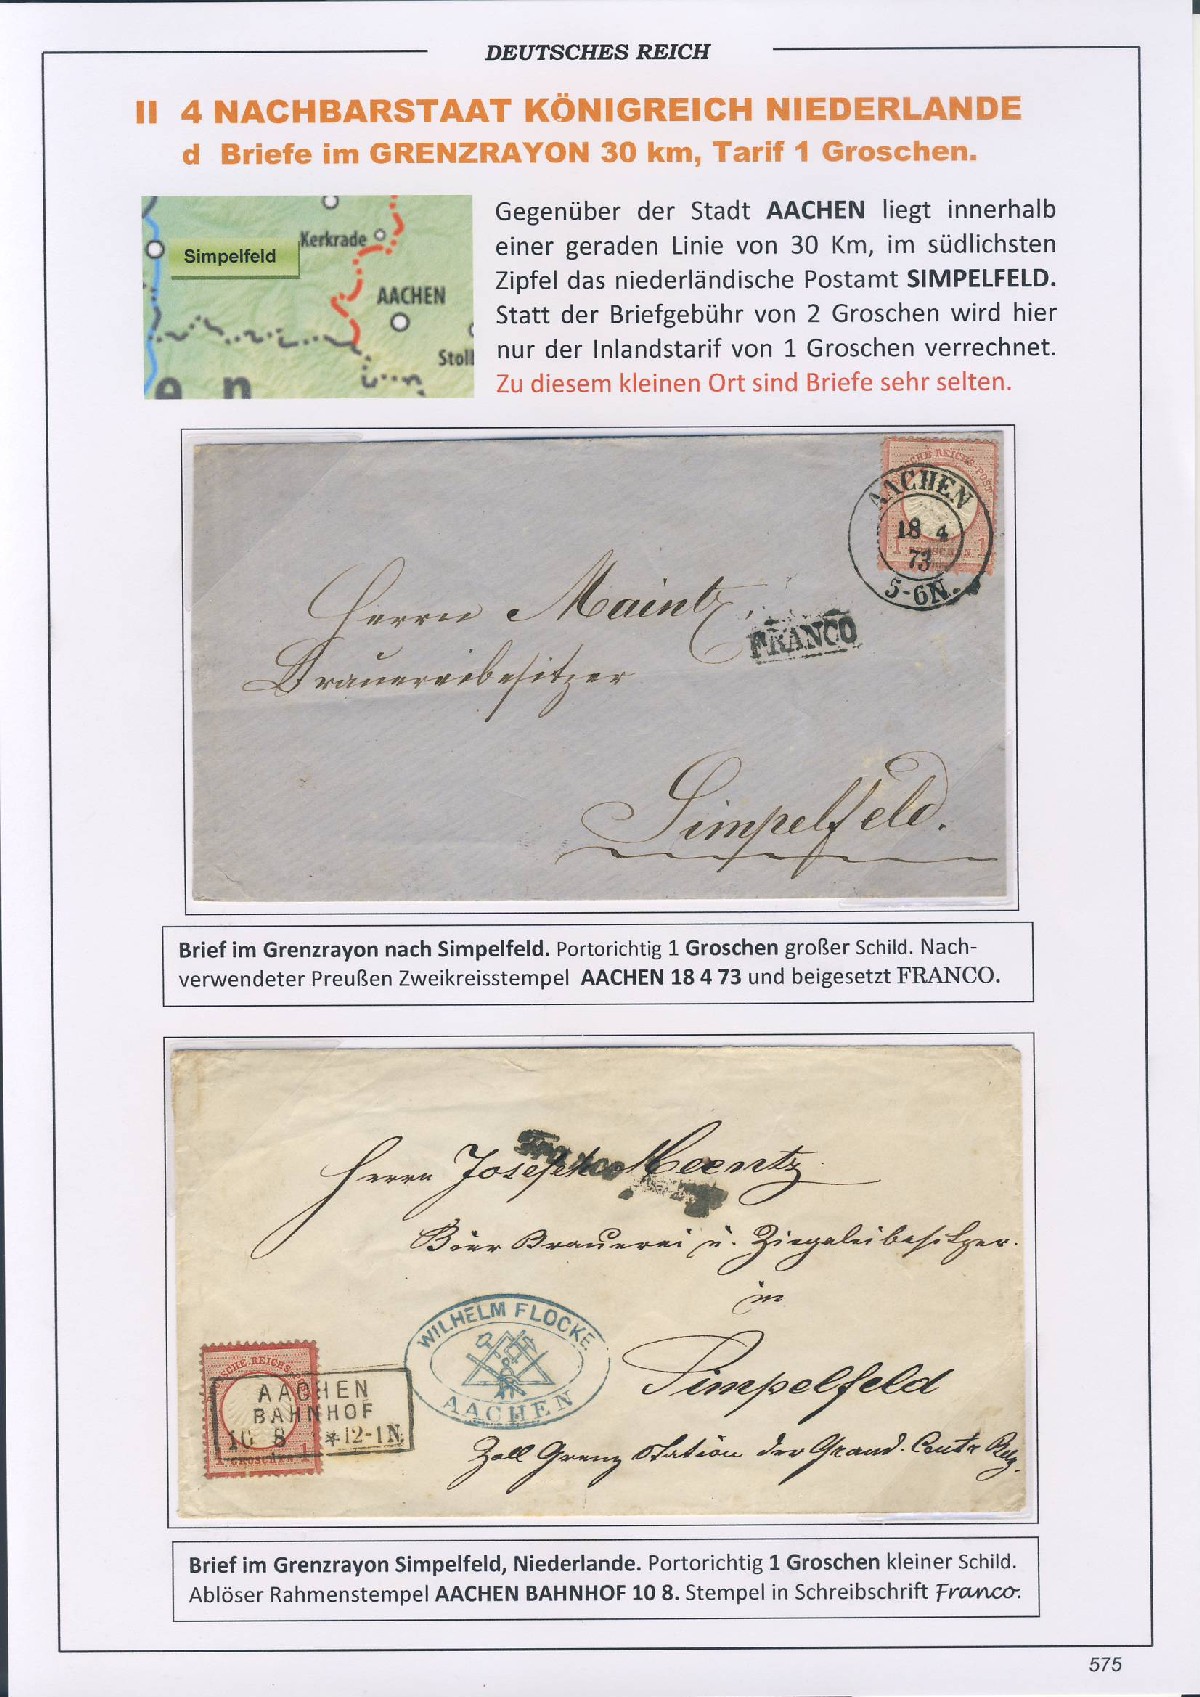 DEUTSCHES REICH
II 4 NACHBARSTAAT KÖNIGREICH NIEDERLANDE
d Briefe im GRENZRAYON 30 km, Tarif 1 Groschen.
Simpelfeld
Kerkrade
AACHEN
Stoll
en
Gegenüber der Stadt AACHEN liegt innerhalb
einer geraden Linie von 30 Km, im südlichsten
Zipfel das niederländische Postamt SIMPELFELD.
Statt der Briefgebühr von 2 Groschen wird hier
nur der Inlandstarif von 1 Groschen verrechnet.
Zu diesem kleinen Ort sind Briefe sehr selten.
AACHEN
18 4
73
5-6N.
Herrn Maintz
FRANCO
Brauereibesitzer
Simpelfeld.
Brief im Grenzrayon nach Simpelfeld. Portorichtig 1 Groschen großer Schild. Nach-
verwendeter Preußen Zweikreisstempel AACHEN 18 4 73 und beigesetzt FRANCO.
Franco
Herrn Joseph Meentz
Bier Brauerei u. Ziegeleibesitzer.
in
Simpelfeld
Zoll Grenz Station der Grand. Centr Belg.
WILHELM FLOCKE
AACHEN
AACHEN
BAHNHOF
10 8 *12-1N.
1 GROSCHEN 1
Brief im Grenzrayon Simpelfeld, Niederlande. Portorichtig 1 Groschen kleiner Schild.
Ablöser Rahmenstempel AACHEN BAHNHOF 10 8. Stempel in Schreibschrift Franco.
575